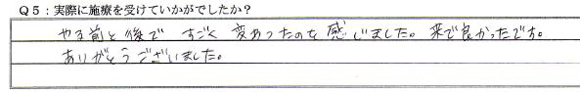 Q5：実際に施療を受けていかがでしたか？
やる前と後で すごく 変わったのを 感じました。来て良かったです。
ありがとうございました。